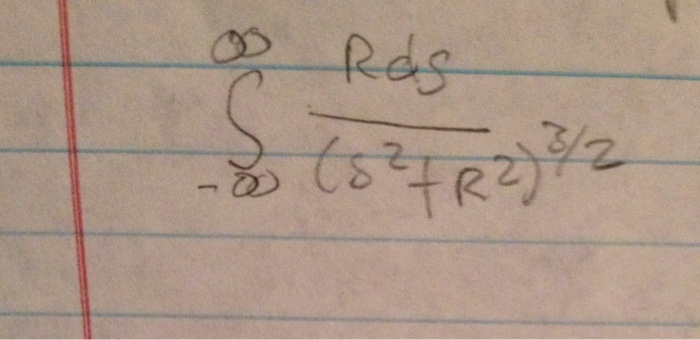 ∞
∫ Rds / (s²+R²)^3/2
-∞